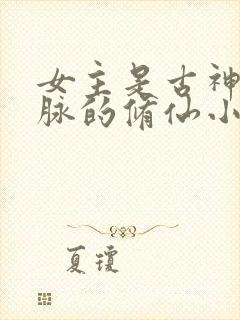 女主是古神
脉的修仙小
夏琼